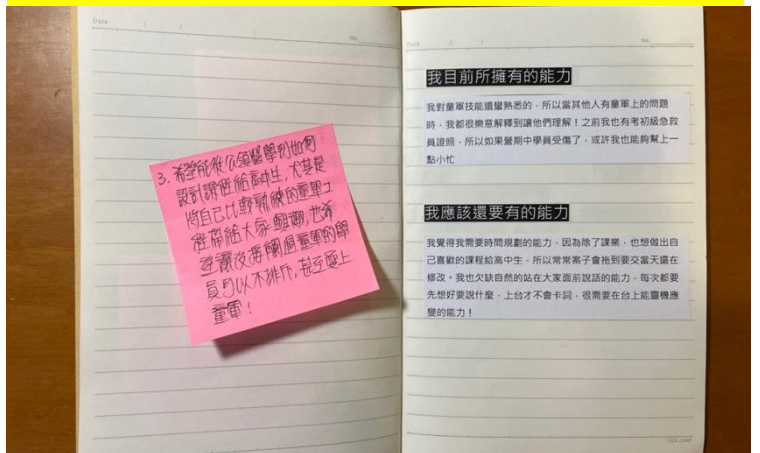 Date
No
3. 希望能從公領營學到如何
設計課程給高中生，尤其是
將自己比較熟練的童軍工
程帶給大家
員可以不排斥，甚至愛上
童軍！
Date
No
我目前所擁有的能力
我對童軍技能還蠻熟悉的，所以當其他人有童軍上的問題
時，我都很樂意解釋到讓他們理解！之前我也有考初級急救
員證照，所以如果營期中學員受傷了，或許我也能夠幫上一
點小忙
我應該還要有的能力
我覺得我需要時間規劃的能力，因為除了課業，也想做出自
己喜歡的課程給高中生，所以常常案子會拖到要交當天還在
修改。我也欠缺自然的站在大家面前說話的能力，每次都要
先想好要說什麼，上台才不會卡詞，很需要在台上能靈機應
變的能力！